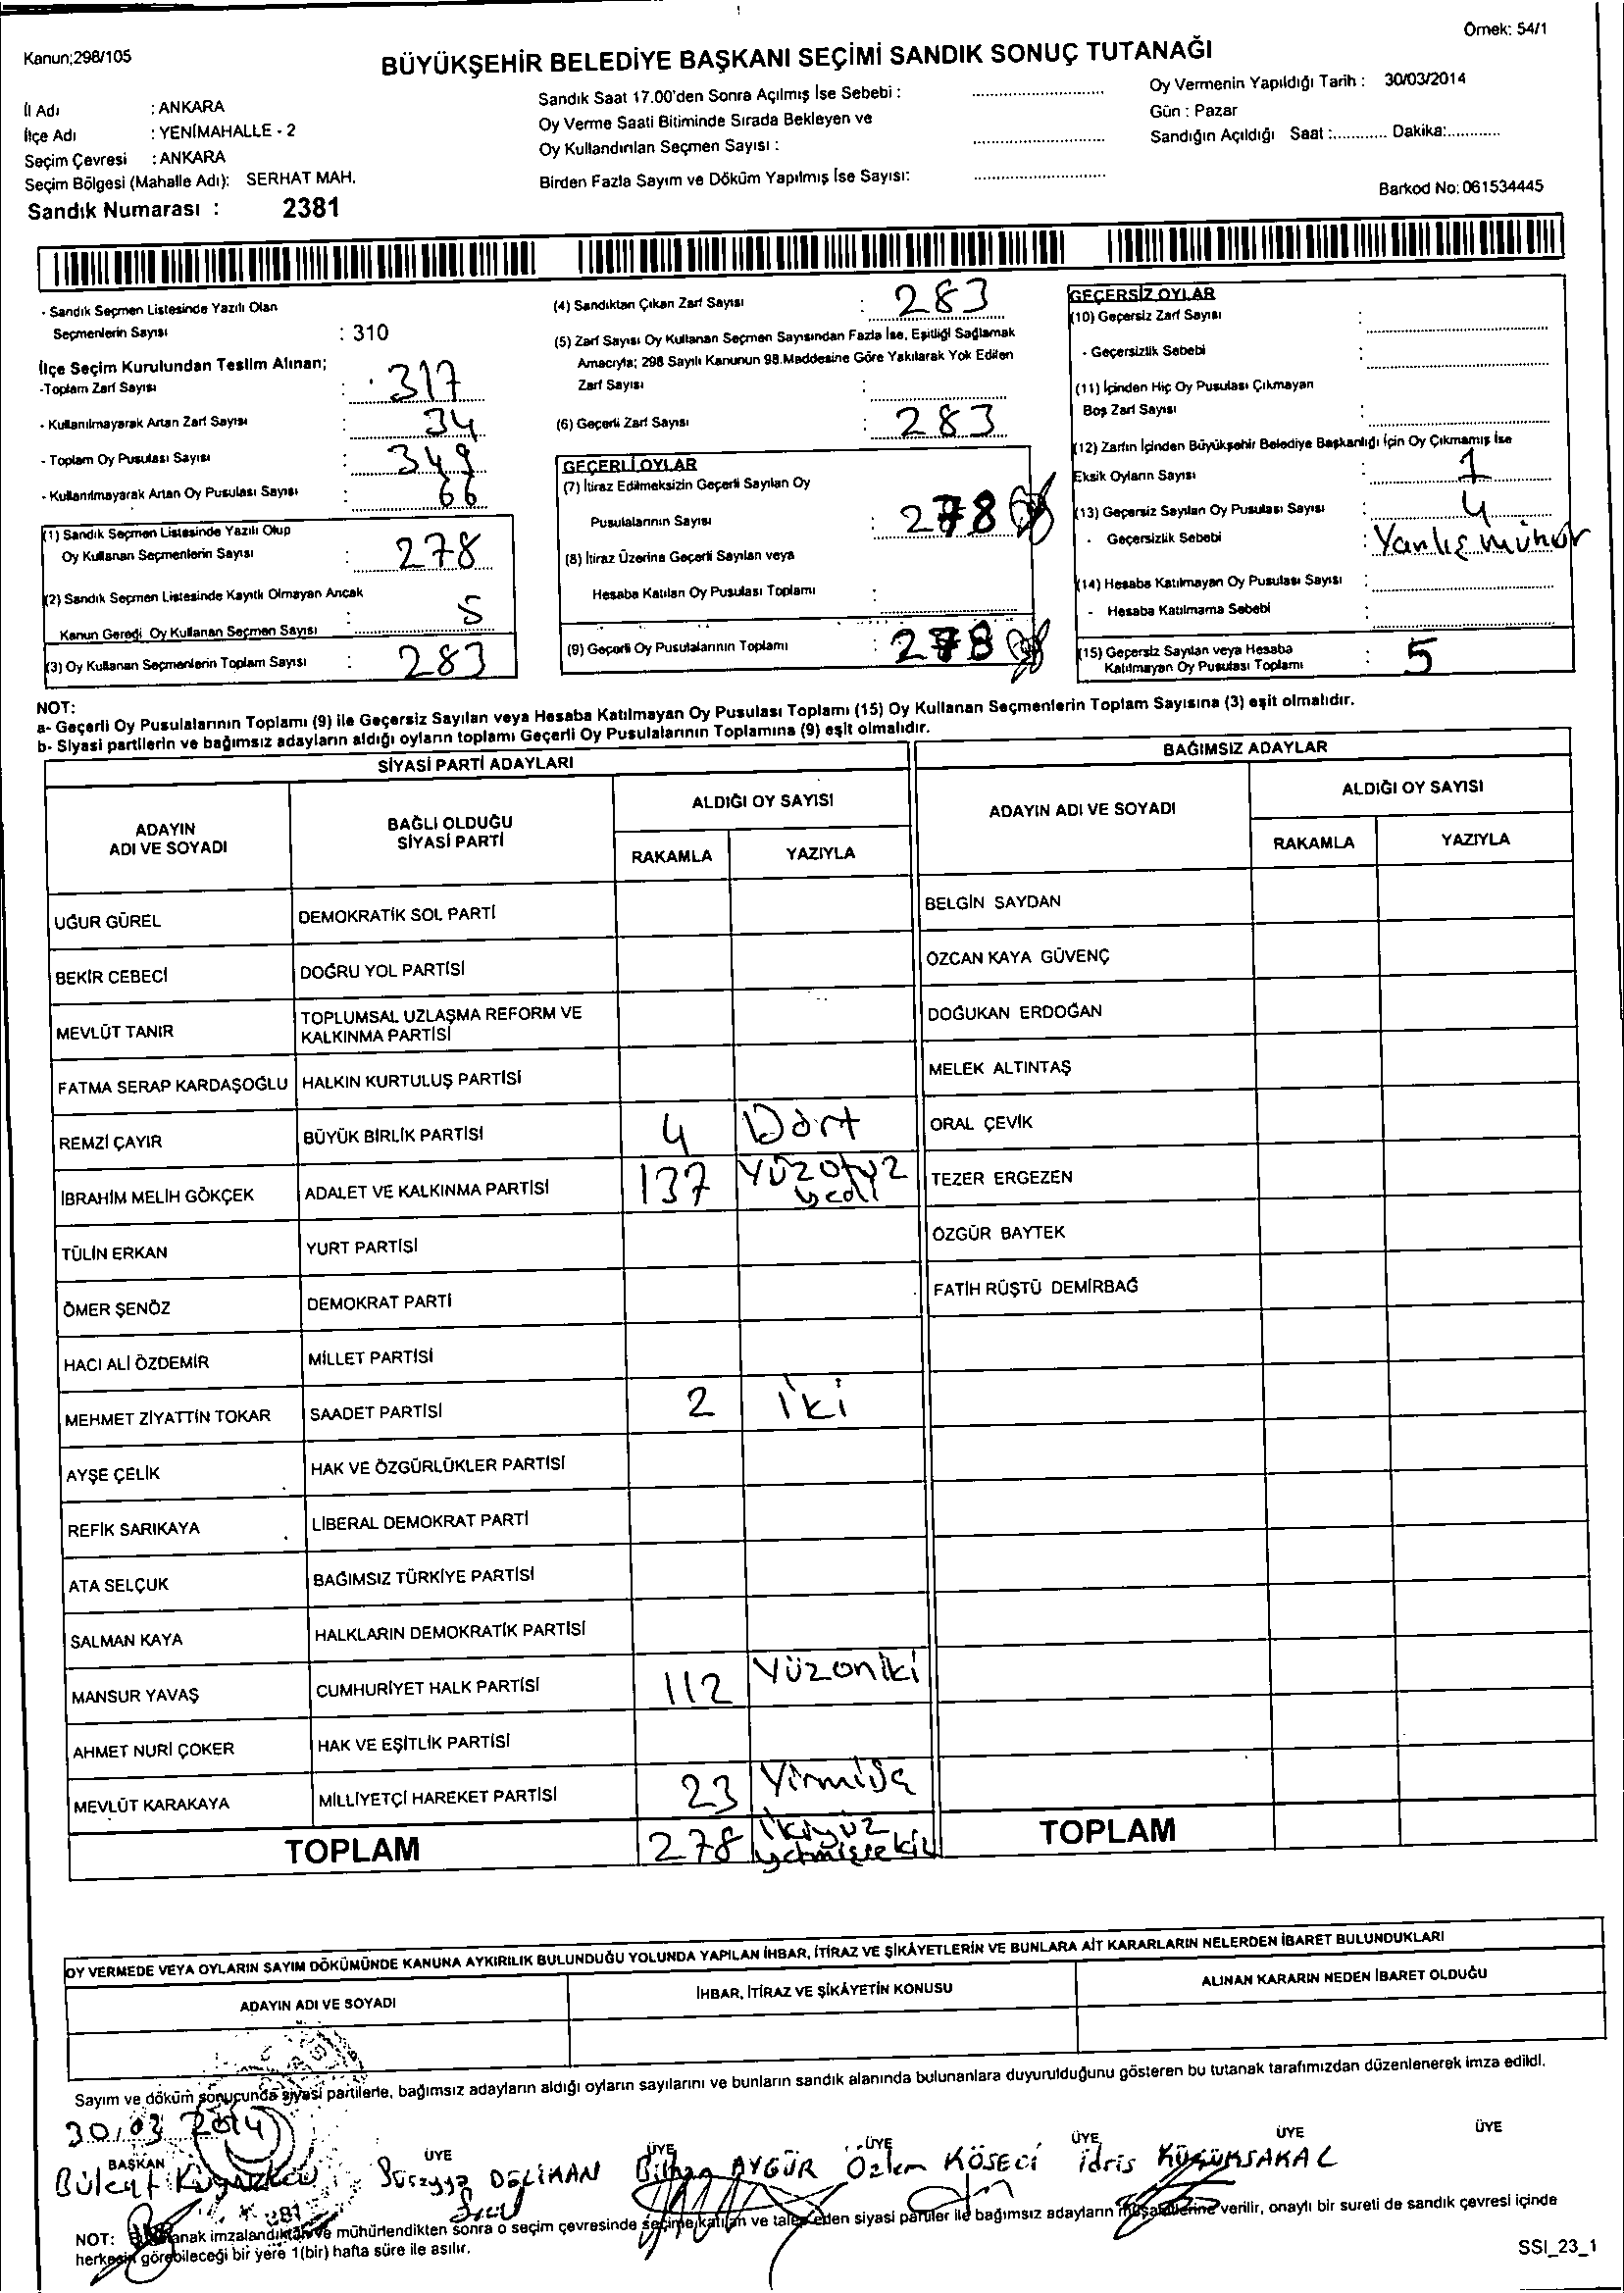 Örnek: 54/1
Kanun;298/105
BÜYÜKŞEHİR BELEDİYE BAŞKANI SEÇİMİ SANDIK SONUÇ TUTANAĞI
İl Adı : ANKARA
İlçe Adı : YENİMAHALLE - 2
Seçim Çevresi : ANKARA
Seçim Bölgesi (Mahalle Adı): SERHAT MAH.
Sandık Numarası : 2381
Sandık Saat 17.00'den Sonra Açılmış İse Sebebi :
Oy Verme Saati Bitiminde Sırada Bekleyen ve
Oy Kullandırılan Seçmen Sayısı :
Birden Fazla Sayım ve Döküm Yapılmış İse Sayısı:
Oy Vermenin Yapıldığı Tarih : 30/03/2014
Gün : Pazar
Sandığın Açıldığı Saat :............ Dakika:............
Barkod No: 061534445
- Sandık Seçmen Listesinde Yazılı Olan
Seçmenlerin Sayısı : 310
İlçe Seçim Kurulundan Teslim Alınan;
-Toplam Zarf Sayısı : 317
- Kullanılmayarak Artan Zarf Sayısı : 34
- Toplam Oy Pusulası Sayısı : 349
- Kullanılmayarak Artan Oy Pusulası Sayısı : 66
(1) Sandık Seçmen Listesinde Yazılı Olup
Oy Kullanan Seçmenlerin Sayısı : 278
(2) Sandık Seçmen Listesinde Kayıtlı Olmayan Ancak
Kanun Gereği Oy Kullanan Seçmen Sayısı : 5
(3) Oy Kullanan Seçmenlerin Toplam Sayısı : 283
(4) Sandıktan Çıkan Zarf Sayısı : 283
(5) Zarf Sayısı Oy Kullanan Seçmen Sayısından Fazla İse, Eşitliği Sağlamak
Amacıyla; 298 Sayılı Kanunun 98.Maddesine Göre Yakılarak Yok Edilen
Zarf Sayısı :
(6) Geçerli Zarf Sayısı : 283
GEÇERLİ OYLAR
(7) İtiraz Edilmeksizin Geçerli Sayılan Oy
Pusulalarının Sayısı : 278
(8) İtiraz Üzerine Geçerli Sayılan veya
Hesaba Katılan Oy Pusulası Toplamı :
(9) Geçerli Oy Pusulalarının Toplamı : 278
GEÇERSİZ OYLAR
(10) Geçersiz Zarf Sayısı :
- Geçersizlik Sebebi :
(11) İçinden Hiç Oy Pusulası Çıkmayan
Boş Zarf Sayısı :
(12) Zarfın İçinden Büyükşehir Belediye Başkanlığı İçin Oy Çıkmamış İse
Eksik Oyların Sayısı : 1
(13) Geçersiz Sayılan Oy Pusulası Sayısı : 4
- Geçersizlik Sebebi : Yanlış mühür
(14) Hesaba Katılmayan Oy Pusulası Sayısı :
- Hesaba Katılmama Sebebi :
(15) Geçersiz Sayılan veya Hesaba
Katılmayan Oy Pusulası Toplamı : 5
NOT:
a- Geçerli Oy Pusulalarının Toplamı (9) ile Geçersiz Sayılan veya Hesaba Katılmayan Oy Pusulası Toplamı (15) Oy Kullanan Seçmenlerin Toplam Sayısına (3) eşit olmalıdır.
b- Siyasi partilerin ve bağımsız adayların aldığı oyların toplamı Geçerli Oy Pusulalarının Toplamına (9) eşit olmalıdır.
SİYASİ PARTİ ADAYLARI
ADAYIN ADI VE SOYADI BAĞLI OLDUĞU SİYASİ PARTİ ALDIĞI OY SAYISI
RAKAMLA YAZIYLA
UĞUR GÜREL DEMOKRATİK SOL PARTİ
BEKİR CEBECİ DOĞRU YOL PARTİSİ
MEVLÜT TANIR TOPLUMSAL UZLAŞMA REFORM VE KALKINMA PARTİSİ
FATMA SERAP KARDAŞOĞLU HALKIN KURTULUŞ PARTİSİ
REMZİ ÇAYIR BÜYÜK BİRLİK PARTİSİ 4 Dört
İBRAHİM MELİH GÖKÇEK ADALET VE KALKINMA PARTİSİ 137 Yüzotuz yedi
TÜLİN ERKAN YURT PARTİSİ
ÖMER ŞENÖZ DEMOKRAT PARTİ
HACI ALİ ÖZDEMİR MİLLET PARTİSİ
MEHMET ZİYATTİN TOKAR SAADET PARTİSİ 2 iki
AYŞE ÇELİK HAK VE ÖZGÜRLÜKLER PARTİSİ
REFİK SARIKAYA LİBERAL DEMOKRAT PARTİ
ATA SELÇUK BAĞIMSIZ TÜRKİYE PARTİSİ
SALMAN KAYA HALKLARIN DEMOKRATİK PARTİSİ
MANSUR YAVAŞ CUMHURİYET HALK PARTİSİ 112 Yüzoniki
AHMET NURİ ÇOKER HAK VE EŞİTLİK PARTİSİ
MEVLÜT KARAKAYA MİLLİYETÇİ HAREKET PARTİSİ 23 Yirmiüç
TOPLAM 278 ikiyüz yetmişsekiz
BAĞIMSIZ ADAYLAR
ADAYIN ADI VE SOYADI ALDIĞI OY SAYISI
RAKAMLA YAZIYLA
BELGİN SAYDAN
ÖZCAN KAYA GÜVENÇ
DOĞUKAN ERDOĞAN
MELEK ALTINTAŞ
ORAL ÇEVİK
TEZER ERGEZEN
ÖZGÜR BAYTEK
FATİH RÜŞTÜ DEMİRBAĞ
TOPLAM
OY VERMEDE VEYA OYLARIN SAYIM DÖKÜMÜNDE KANUNA AYKIRILIK BULUNDUĞU YOLUNDA YAPILAN İHBAR, İTİRAZ VE ŞİKÂYETLERİN VE BUNLARA AİT KARARLARIN NELERDEN İBARET BULUNDUKLARI
ADAYIN ADI VE SOYADI İHBAR, İTİRAZ VE ŞİKÂYETİN KONUSU ALINAN KARARIN NEDEN İBARET OLDUĞU
Sayım ve döküm sonucunda siyasi partilerle, bağımsız adayların aldığı oyların sayılarını ve bunların sandık alanında bulunanlara duyurulduğunu gösteren bu tutanak tarafımızdan düzenlenerek imza edildi.
30.03 2014
BAŞKAN ÜYE ÜYE ÜYE ÜYE ÜYE ÜYE
Bülent DELİKAN AYGÜR Özlem KÖSECİ idris KÜÇÜKSAKAL
NOT: tutanak imzalandıktan ve mühürlendikten sonra o seçim çevresinde seçime katılan ve talep eden siyasi partiler ile bağımsız adayların müşahitlerine verilir, onaylı bir sureti de sandık çevresi içinde
herkesin görebileceği bir yere 1(bir) hafta süre ile asılır.
SSI_23_1